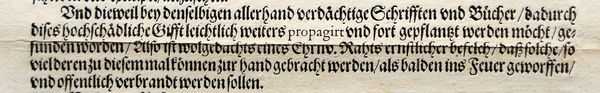 Vnd dieweil bey denselbigen allerhand verdächtige Schrifften vnd Bücher/ dadurch
dises hochschädliche Gifft leichtlich weiters propagirt vnd fort gepflantzt werden möcht/ ge-
funden worden/ Also ist wolgedachts eines Ehrnv. Rahts ernstlicher befelch/ daß solche/ so
viel deren zu diesem mal können zur hand gebracht werden/ als balden ins Feuer geworffen/
vnd offentlich verbrandt werden sollen.